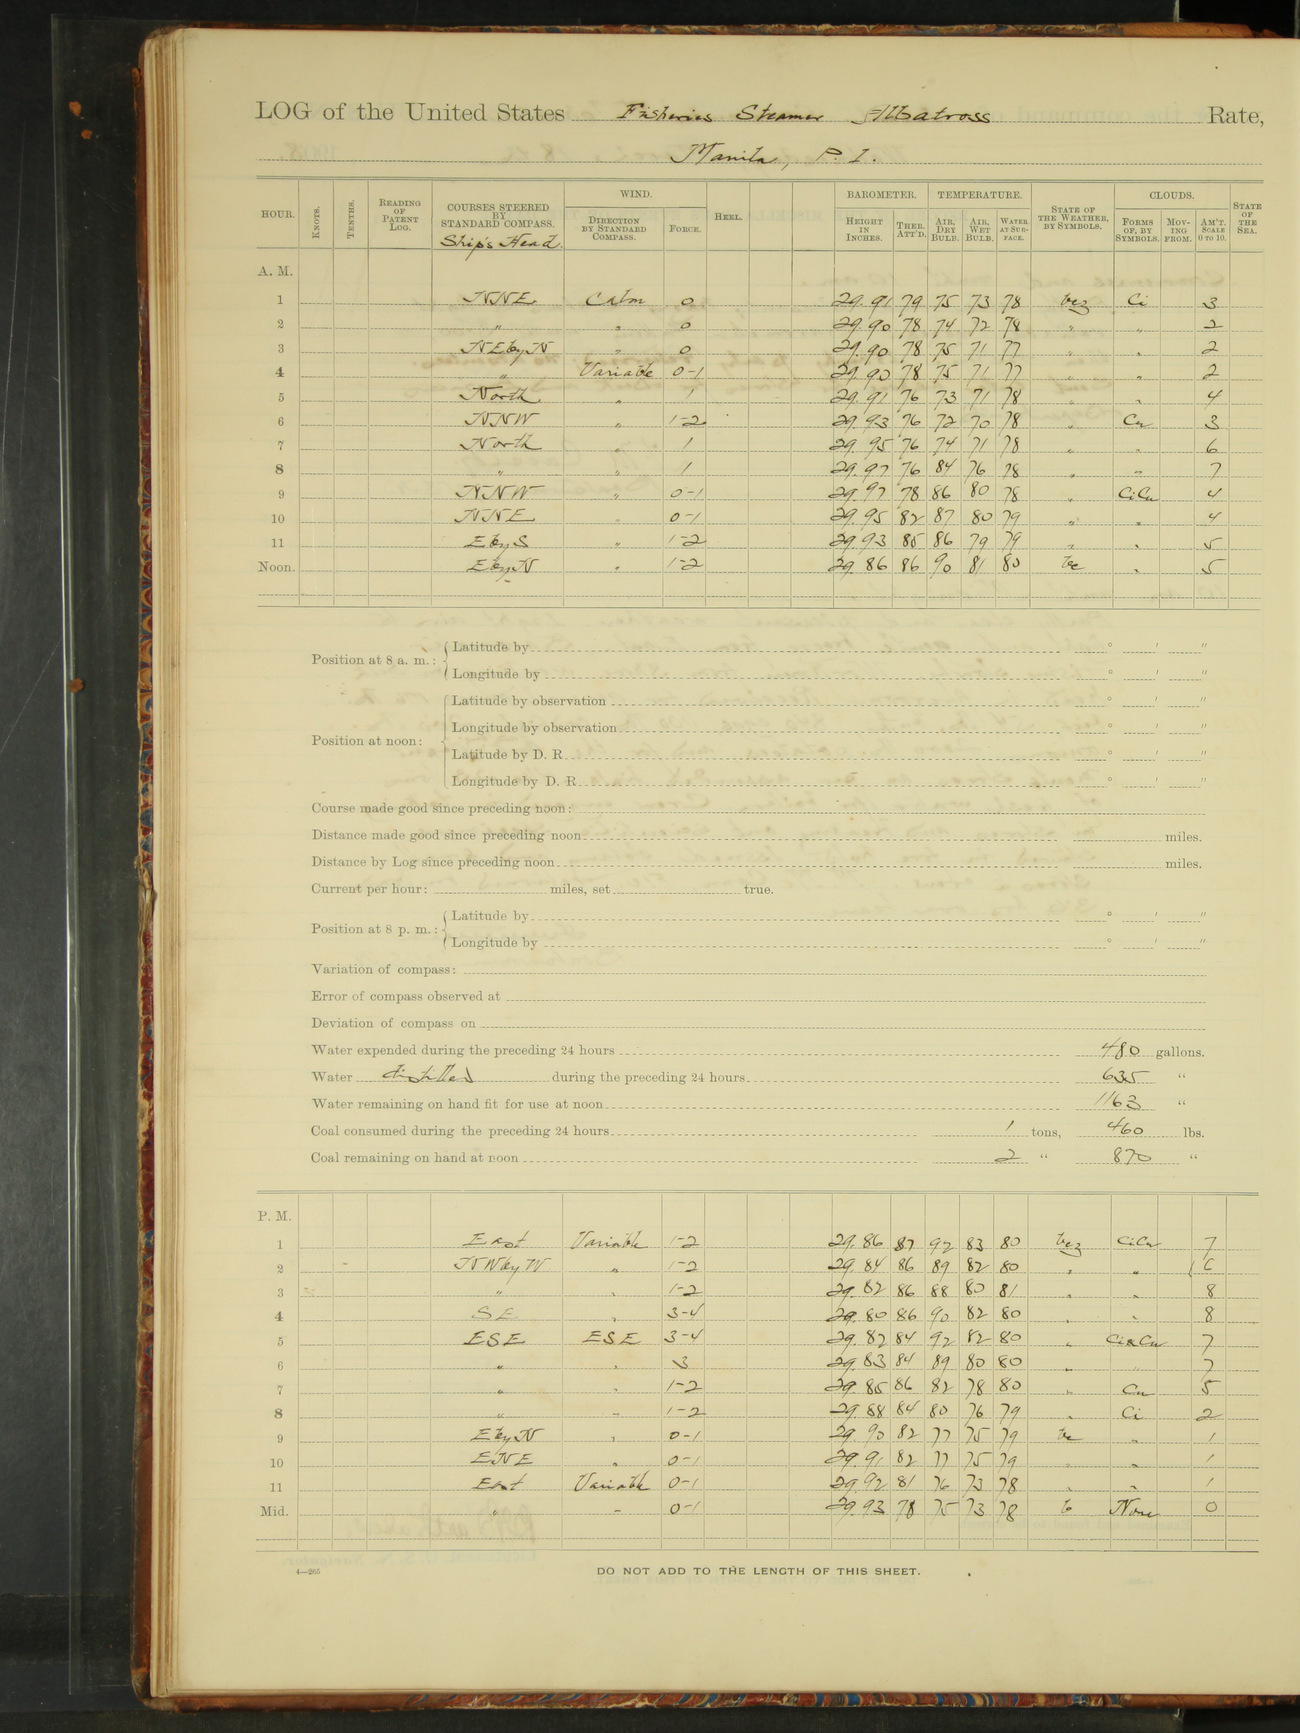 LOG of the United States Fisheries Steamer Albatross Rate,
Manila, P. I.
HOUR. KNOTS. TENTHS. READING OF PATENT LOG. COURSES STEERED BY STANDARD COMPASS. Ship's Head. WIND. DIRECTION BY STANDARD COMPASS. FORCE. HEEL. BAROMETER. HEIGHT IN INCHES. THER. ATT'D. TEMPERATURE. AIR, DRY BULB. AIR, WET BULB. WATER AT SURFACE. STATE OF THE WEATHER, BY SYMBOLS. CLOUDS. FORMS OF, BY SYMBOLS. MOVING FROM. AM'T. SCALE 0 TO 10. STATE OF THE SEA.
A. M.
1 NNE Calm 0 29.91 79 75 73 78 bcz Ci 3
2 " " 0 29.90 78 74 72 78 " " 2
3 NEbyN " 0 29.90 78 75 71 77 " " 2
4 " Variable 0-1 29.90 78 75 71 77 " " 2
5 North " 1 29.91 76 73 71 78 " " 4
6 NNW " 1-2 29.93 76 72 70 78 " Cu 3
7 North " 1 29.95 76 74 71 78 " " 6
8 " " 1 29.97 76 84 76 78 " " 7
9 NNW " 0-1 29.97 78 86 80 78 " CiCu 4
10 NNE " 0-1 29.95 82 87 80 79 " " 4
11 EbyS " 1-2 29.93 85 86 79 79 " " 5
Noon. EbyN " 1-2 29.86 86 90 81 80 bc " 5
Position at 8 a. m.: Latitude by ° ' "
Longitude by ° ' "
Position at noon: Latitude by observation ° ' "
Longitude by observation ° ' "
Latitude by D. R. ° ' "
Longitude by D. R. ° ' "
Course made good since preceding noon:
Distance made good since preceding noon miles.
Distance by Log since preceding noon miles.
Current per hour: miles, set true.
Position at 8 p. m.: Latitude by ° ' "
Longitude by ° ' "
Variation of compass:
Error of compass observed at
Deviation of compass on
Water expended during the preceding 24 hours 480 gallons.
Water distilled during the preceding 24 hours 635 "
Water remaining on hand fit for use at noon 1163 "
Coal consumed during the preceding 24 hours 1 tons, 460 lbs.
Coal remaining on hand at noon 2 " 870 "
P. M.
1 East Variable 1-2 29.86 87 92 83 80 bcz CiCu 7
2 NWbyW " 1-2 29.84 86 89 82 80 " " 6
3 " " 1-2 29.82 86 88 80 81 " " 8
4 SE " 3-4 29.80 86 90 82 80 " " 8
5 ESE ESE 3-4 29.82 84 92 82 80 " Ci&Cu 7
6 " " 3 29.83 84 89 80 80 " " 7
7 " " 1-2 29.85 86 82 78 80 " Cu 5
8 " " 1-2 29.88 84 80 76 79 " Ci 2
9 EbyN " 0-1 29.90 82 77 75 79 bc " 1
10 ENE " 0-1 29.91 82 77 75 79 " " 1
11 East Variable 0-1 29.92 81 76 73 78 " " 1
Mid. " " 0-1 29.93 78 75 73 78 b None 0
4—265
DO NOT ADD TO THE LENGTH OF THIS SHEET.